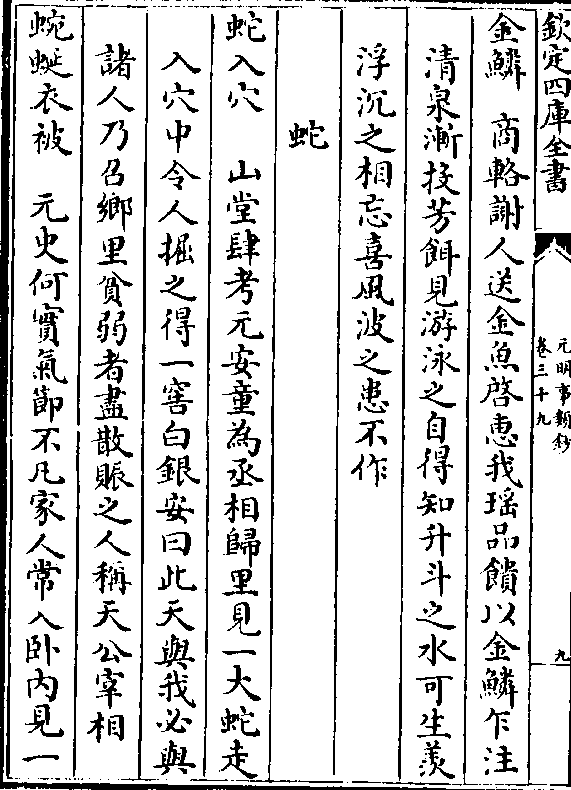 欽定四庫全書
元明事類鈔
卷三十九
九
金鱗　商輅謝人送金魚啓恵我瑶品饋以金鱗乍注
清泉漸投芳餌見游泳之自得知升斗之水可生羡
浮沉之相忘喜風波之患不作
蛇
蛇入穴　山堂肆考元安童為丞相歸里見一大蛇走
入穴中令人掘之得一窖白銀安曰此天與我必與
諸人乃召鄉里貧弱者盡散賑之人稱天公宰相
蜿蜒衣被　元史何實氣節不凡家人常入卧内見一